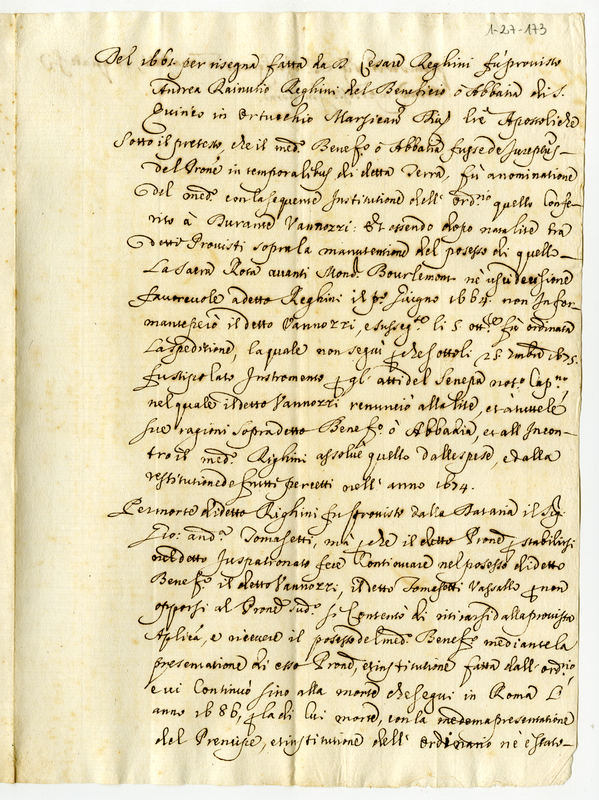 1-27-173
Del 1661 per risegna fatta da D. Cesare Reghini fù provisto
Andrea Rainurio Reghini del Beneficio ò Abbazia di S.
Quinzo in Ortucchio Marsican Apostoliche
Sotto il pretesto, che il med.º Benef.º ò Abbazia fusse de Juspat-
del Prone in temporalibus di detta Terra, fù a nominatione
del med.º con la sequente Institutione dell' ord.rio quello Confe-
rito à Durante Vannozzi: Et essendo dopo nata lite trà
detti Provisti sopra la manutentione del possesso di quello
La Sacra Rota avanti Mons.r Bourlemont ne uscì decisione
favorevole a detto Reghini il p.º Giugno 1664. non Infor-
mante però il detto Vannozzi, e susseg.te li 5 fù ordinata
La speditione, la quale non seguì che sotto li 25 1675.
fu stipolato Instromento gl' atti del Senepa not.º Cap.no
nel quale il detto Vannozzi renunciò alla lite, et à tutte le
sue ragioni sopra detto Benef.º ò Abbazia, et all' Incon-
tro il med.º Righini assolvè quello dalle spese, e dalla
restitutione de frutti percetti nell' anno 1674.
Per morte di detto Righini fu provisto dalla Dataria il Sig.
And.ª Tomasetti, mà che il detto Prone stabilirsi
nel detto Juspatronato fece Continuare nel possesso di detto
Benef.º il detto Vannozzi, il detto Tomasetti Vassallo non
opporsi al Prone sud.º si Contentò di ritirarsi dalla provista
Aplica, e ricevere il possesso del med.º Benef.º mediante la
presentatione di esso Prone, et institutione fatta dall' ord.rio,
e vi Continuò sino alla morte che seguì in Roma L'
anno 1686, la di lui morte, con la medema presentatione
del Prencipe, et institutione dell' ordinario nè è stato